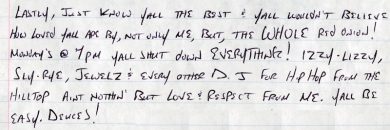 Lastly, Just know yall the best & yall wouldn't believe
how loved yall are by, not only me, but, the WHOLE Red Onion!
Monday's @ 7pm yall shut down EVERYTHING! Izzy-Lizzy,
Sly-Rye, Jewelz & every other D.J for Hip Hop from the
Hilltop aint nothin' but love & respect from me. Yall be
easy. Deuces!